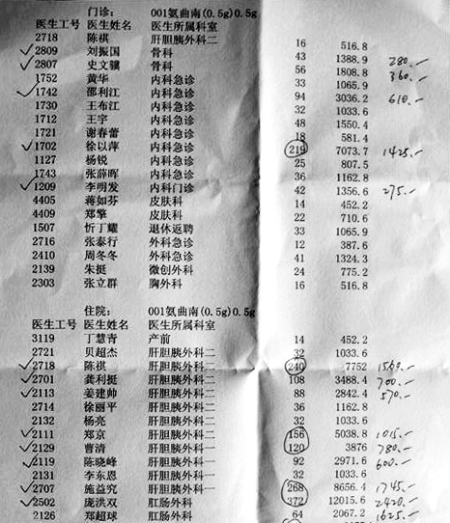 门诊: 001氨曲南(0.5g)0.5g
医生工号 医生姓名 医生所属科室
2718 陈祺 肝胆胰外科二 16 516.8
2809 刘振国 骨科 43 1388.9 280.-
2807 史文骥 骨科 56 1808.8 360.-
1752 黄华 内科急诊 33 1065.9
1742 邵利江 内科急诊 94 3036.2 610.-
1730 王布江 内科急诊 32 1033.6
1712 王宇 内科急诊 48 1550.4
1721 谢春蕾 内科急诊 18 581.4
1702 徐以萍 内科急诊 219 7073.7 1425.-
1127 杨锐 内科急诊 25 807.5
1743 张薛晖 内科急诊 36 1162.8
1209 李明发 内科门诊 42 1356.6 275.-
4405 蒋如芬 皮肤科 14 452.2
4409 郑擎 皮肤科 22 710.6
1507 忻丁耀 退休返聘 33 1065.9
2716 张泰行 外科急诊 12 387.6
2410 周冬冬 外科急诊 41 1324.3
2139 朱挺 微创外科 24 775.2
2303 张立群 胸外科 16 516.8
住院: 001氨曲南(0.5g)0.5g
医生工号 医生姓名 医生所属科室
3119 丁慧青 产前 14 452.2
2721 贝超杰 肝胆胰外科二 32 1033.6
2718 陈祺 肝胆胰外科二 240 7752 1560.-
2701 龚利挺 肝胆胰外科二 108 3488.4 700.-
2113 姜建帅 肝胆胰外科二 88 2842.4 570.-
2714 徐丽平 肝胆胰外科二 36 1162.8
2132 杨亮 肝胆胰外科二 32 1033.6
2111 郑京 肝胆胰外科二 156 5038.8 1015.-
2129 曹清 肝胆胰外科一 120 3876 780.-
2119 陈晓峰 肝胆胰外科一 92 2971.6 600.-
2131 李东恩 肝胆胰外科一 32 1033.6
2707 施益究 肝胆胰外科一 268 8656.4 1745.-
2502 庞洪双 肛肠外科 372 12015.6 2420.-
2126 郑超球 肛肠外科 64 2067.2 1625.-